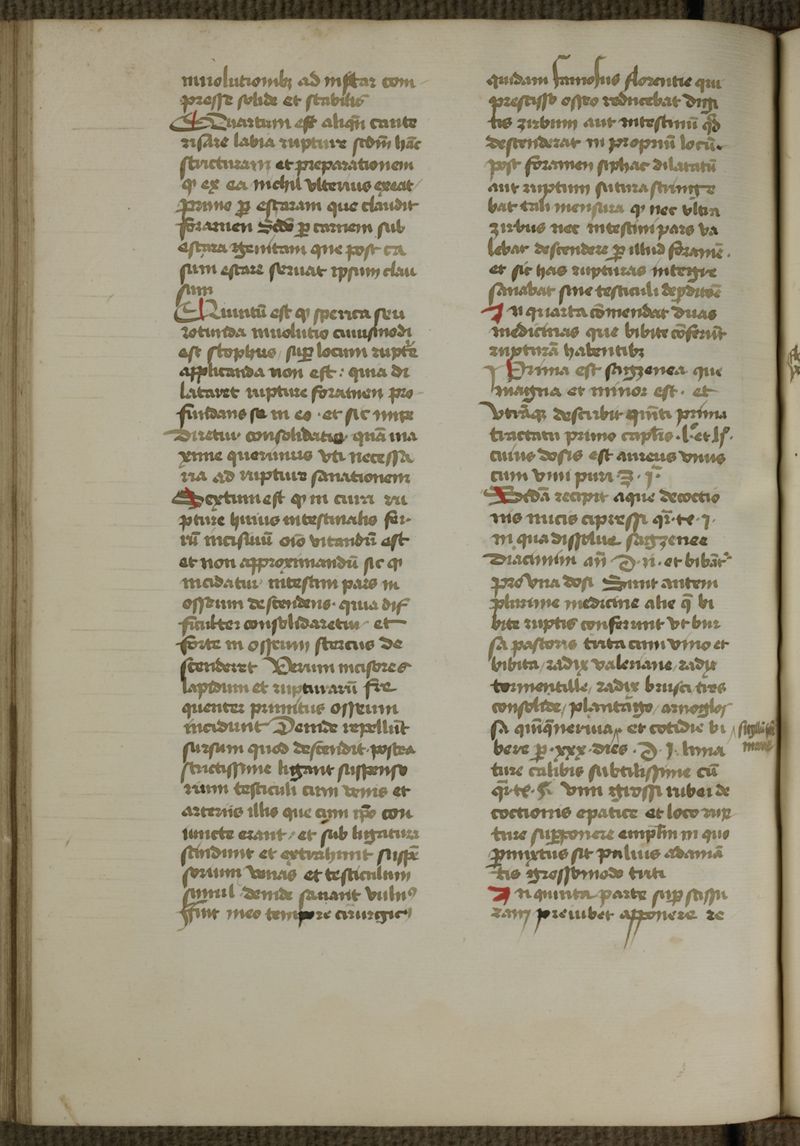 inuolutionibꝫ ad instar com
presse solide et stabilis
Quartum est aliqñ caute
risare labia rupture scdm̃ hãc
stricturam et preparationem
qꝫ ex ea nichil vlterius exeat
primo ꝑ escaram que claudit
foramen Scdo ꝑ carnem sub
escara genitam que post ca
sum escare seruat ipsum clau
sum
Quintũ est qꝫ sperica seu
rotunda inuolutio cuiusmodi
est stophus suꝑ locum rupte
applicanda non est : quia di
lataret rupture foramen pro
fundans se in eo . et sic impe
diretur consolidatio quã ma
xime querimus vti necessa
ria ad rupture sanationem
Sextum est qꝫ in cura ru
pture huius intestinalis fer
rũ incisiuũ oĩo vitandũ est
et non approximandũ sic qꝫ
incidatur intestini pars in
osseum descendens . quia dif
ficulter consolidaretur et
forte in osseum stercus de
scenderet Verum incisores
lapidum et rupturarũ fre
quenter primitus osseum
incidunt Deinde repellũt
sursum quod descendit . postea
strictissime ligant suspenso
rium testiculi cum venis et
arteriis illis que cum ipso con
iuncte erant / et sub ligatura
scindunt et extrahunt suspẽ
sorium venas et testiculum
simul . deinde sanant vulnꝰ
ffuit meo tempore cirurgicꝰ
quidam famosus florentie qui
prescisso osseo reducebat digi
tis zirbum aut intestinũ qd̃
descenderat in proprium locũ .
post foramen siphac dilatatũ
aut ruptum sutura stringe
bat tali mensura qꝫ nec vltra
zirbus nec intestini pars va
lebat descendere ꝑ illud foramẽ .
et sic has rupturas integre
sanabat sine testiculi deperditõe
In quarta cõmendat duas
medicinas que bibite cõferũt
rupturã habentibꝫ
Prima est sagzenea que
magna et minor est . et
vtrãqꝫ describit quinti prima
tractatu primo caplĩs . l . et lj .
cuius dosis est aureus vnus
cum vini puri ℥ . j .
Secda recipit aque decoctio
nis nucis cipressi q̃r . te . j .
in qua dissolue sagzenee
dracimim añ ʒ . ii . et bibãtʳ
pro vna dosi Sunt autem
plurime medicine alie q̃ bi
bite ruptis conferunt vt bur
sa pastoris trita cum vino et
bibita / radix valeriane / radix
tormentille / radix brusci tres
consolide / plantago / arnoglos
sa quinqꝫneruia / et cotidie bi
sigillũ sc̃e
marie
bere ꝑ . xxx . dies . ʒ . j . lima
ture calibis subtilissime cũ
q̃r . te . ß . vini grossi rubei de
coctionis epatice et loco rup
ture supponere emplm̃ in quo
ꝑmixtus sit puluis adamã
tis grossomodo triti
In quinta parte suꝑ scissu
ram prefiubet apponere re